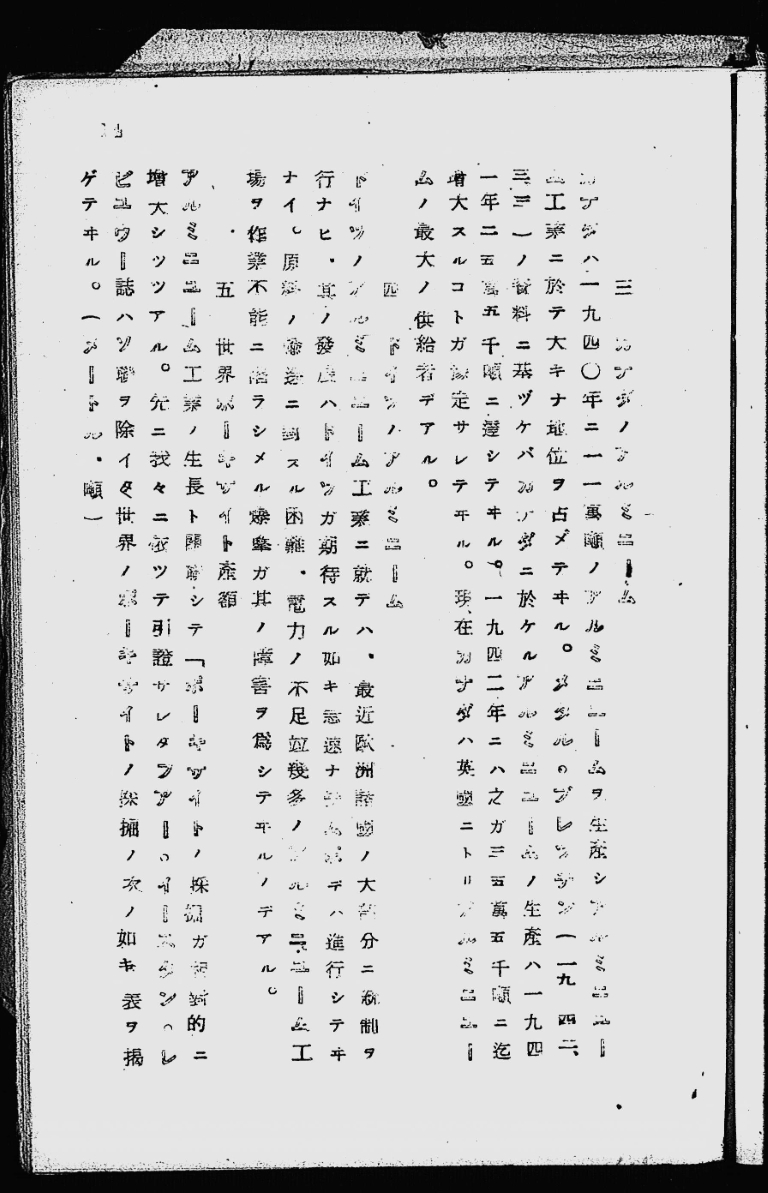 三 カナダノアルミニーム
カナダハ一九四〇年ニ一一萬噸ノアルミニユームヲ生産シアルミニユー
ム工業ニ於テ大キナ地位ヲ占メテヰル。メタル。ブレツチン(一九四二、
三三一)ノ資料ニ基ヅケバカナダニ於ケルアルミニユームノ生産ハ一九四
一年二五萬五千噸ニ達シテヰル。一九四二年ニハ之ガ三五萬五千噸ニ迄
増大スルコトガ豫定サレテヰル。現在カナダハ英國ニトリアルミニユー
ムノ最大ノ供給者デアル。
四 ドイツノアルミニーム
ドイツノアルミニユーム工業ニ就テハ、最近欧洲諸國ノ大部分ニ統制ヲ
行ナヒ、其ノ發展ハドイツガ期待スル如キ急速ナテムポデハ進行シテヰ
ナイ。原料ノ輸送ニ對スル困難、電力ノ不足竝幾多ノアルミニユーム工
場ヲ作業不能ニ陥ラシメル爆撃ガ其ノ障害ヲ爲シテヰルノデアル。
五 世界ボーキサイト産額
アルミニユーム工業ノ生長ト關聯シテ「ボーキサイトノ採掘ガ相對的ニ
増大シツツアル。先ニ我々ニ依ツテ引證サレタアー。イースタン。レ
ビユウー誌ハソ聯ヲ除イタ世界ノボーキサイトノ採掘ノ次ノ如キ表ヲ掲
ゲテヰル。(メートル・噸)